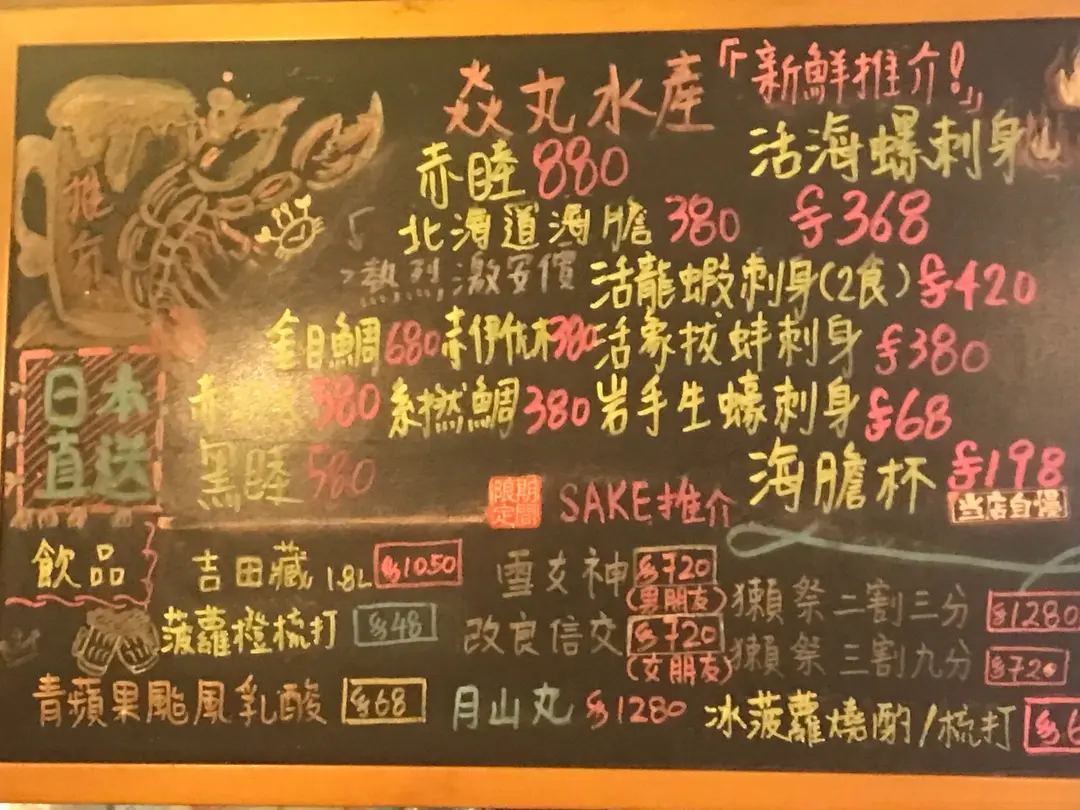 焱丸水產
「新鮮推介!」
推介
赤睦880
北海道海膽380
熱烈激安價
金目鯛680
赤伊佐木380
380
糸撚鯛380
黑睦580
活海螺刺身
$368
活龍蝦刺身(2食)$420
活象拔蚌刺身$380
岩手生蠔刺身$68
海膽杯$198
当店自慢
日本
直送
期間
限定
SAKE推介
飲品
吉田藏1.8L $1050
菠蘿橙梳打 $48
青蘋果颱風乳酸 $68
雪女神 $720
(男朋友)
改良信交 $720
(女朋友)
月山丸 $1280
獺祭二割三分 $1280
獺祭三割九分 $720
冰菠蘿燒酌/梳打